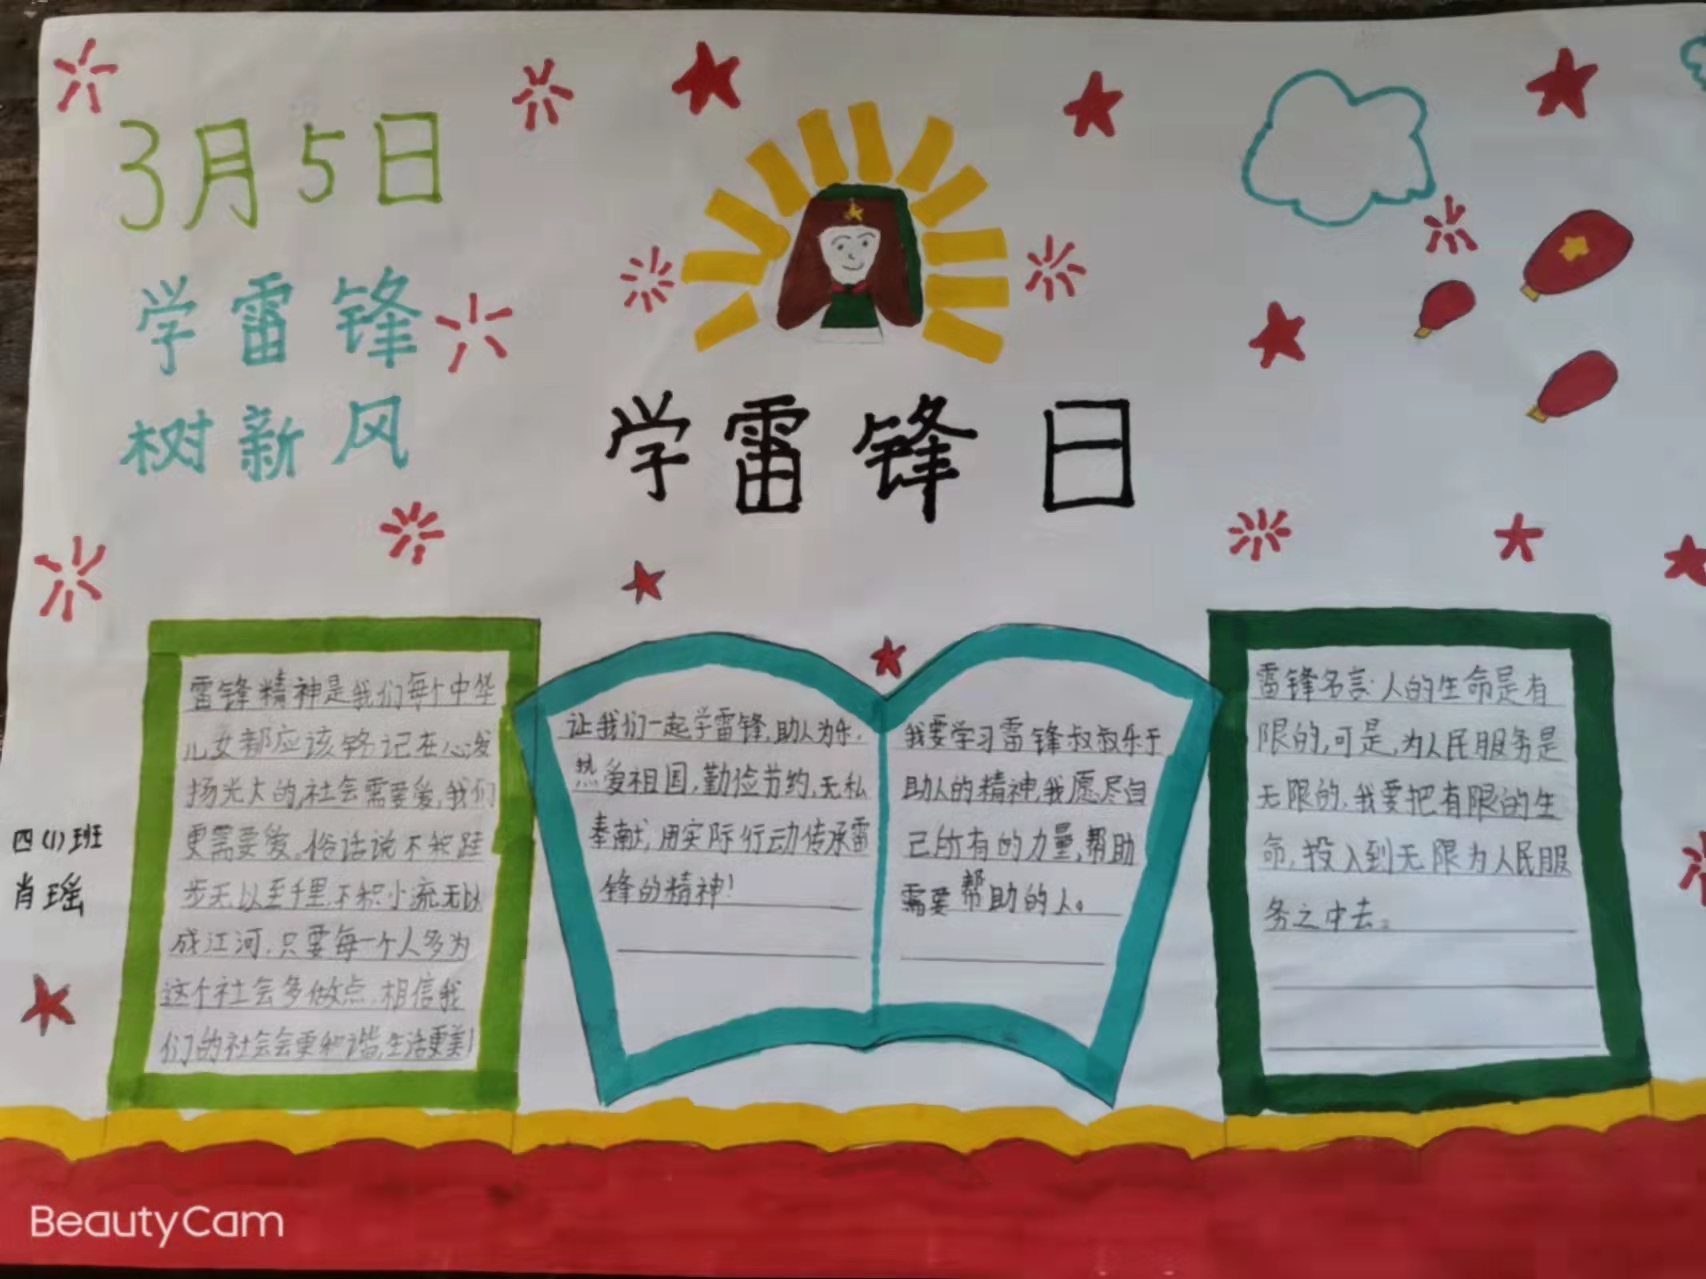 3月5日
学雷锋
树新风
学雷锋日
四(1)班
肖瑶
雷锋精神是我们每个中华
儿女都应该铭记在心,发
扬光大的,社会需要爱,我们
更需要爱。俗话说不积跬
步无以至千里,不积小流无以
成江河,只要每一个人多为
这个社会多做点,相信我
们的社会会更和谐,生活更美!
让我们一起学雷锋,助人为乐,
热爱祖国,勤俭节约,无私
奉献,用实际行动传承雷
锋的精神!
我要学习雷锋叔叔乐于
助人的精神,我愿尽自
己所有的力量,帮助
需要帮助的人。
雷锋名言:人的生命是有
限的,可是,为人民服务是
无限的,我要把有限的生
命,投入到无限为人民服
务之中去。
BeautyCam